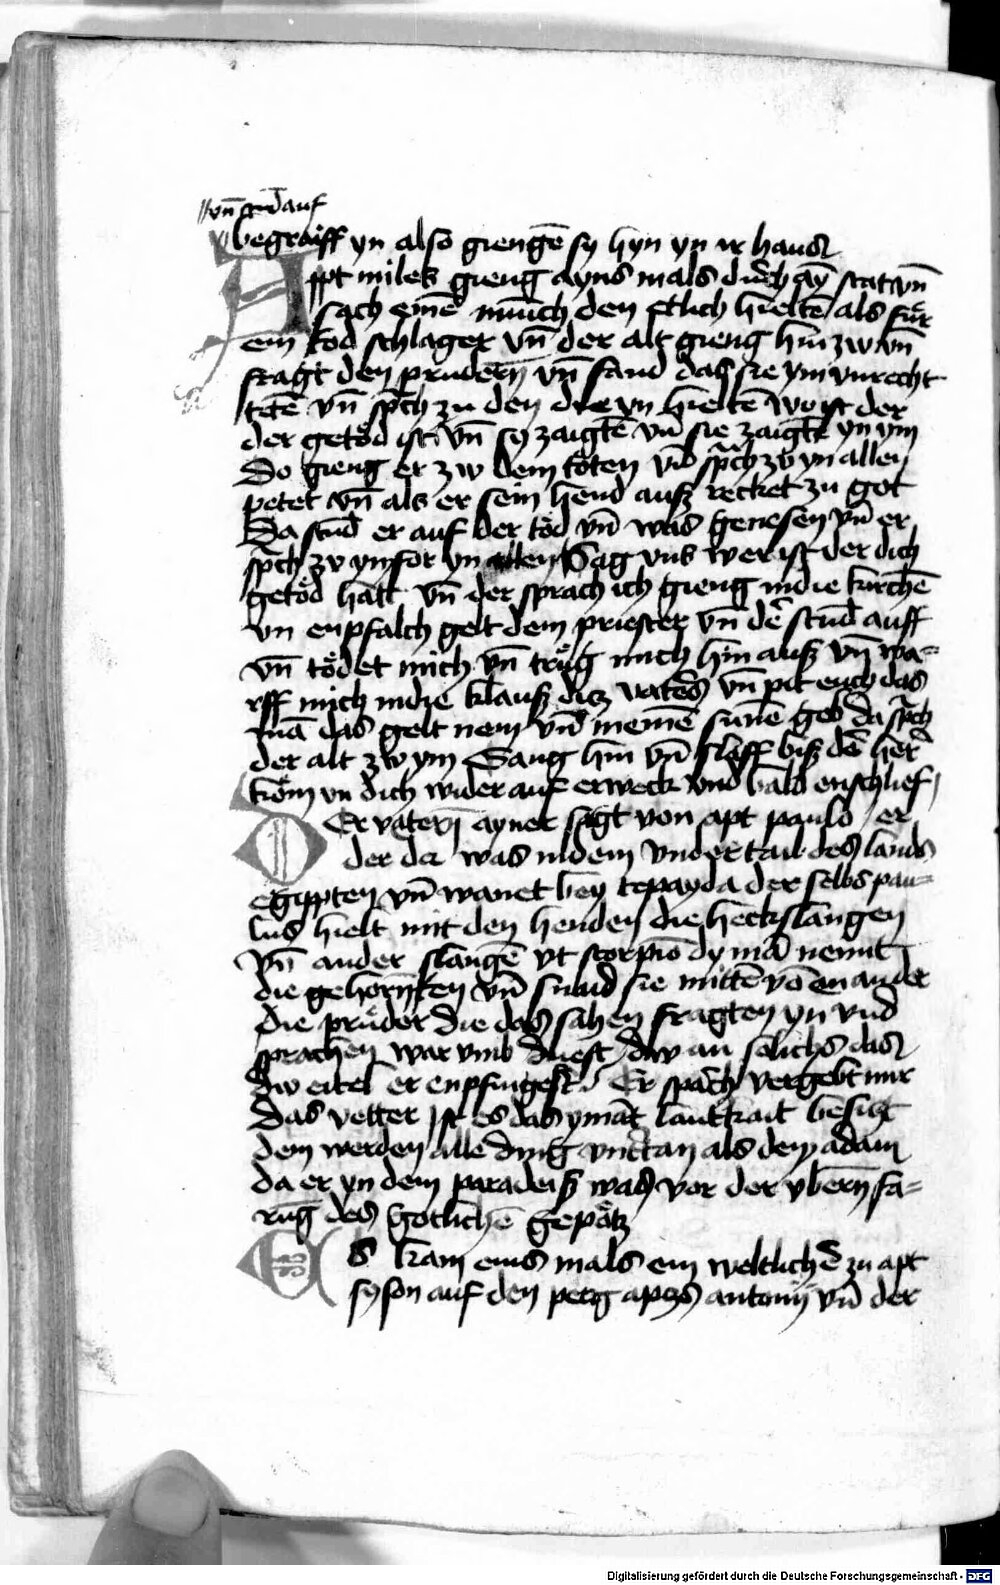 vn̄ stūd auf
begraiff yn also giengē sy hyn yn ir haus
Appt miles gieng ayns mals durch ay stat vn̄
sach einē münch den etlich hieltē als für
ein tod schlager vn̄ der alt gieng hin zw vn̄
fragt den prudern vn̄ fand das sie ym vnrecht
tetē vn̄ spͣch zu den die yn hieltē Wo ist der
der getöd ist vn̄ sy zaigtē vn̄ sie zaigtē yn ym
Do gieng er zw dem toten vn̄ spͣch zu yn allen
petet vn̄ als er sein hend auß recket zu got
Da stūd er auf der töd vn̄ was genesen vn̄ er
spͣch zu ym for yn allen Sag vns wer ist der dich
getöd hatt vn̄ der sprach ich gieng in die kirchē
vn enpfalch gelt dem priester vn̄ der stūd auff
vn̄ tödet mich vn̄ trüg mich hin auß vn̄ wa=
rff mich in die klauß diz vaters vn̄ pit euch das
mā das gelt nem vn̄ meinē sunē geb da spͣch
der alt zw ym Gang hin vn̄ slaff biß der her
köm vn dich wider auf erweck vnd bald enschlief
Der vatern ayner sagt von apt paulo er
der da was in dem vndertail des lands
egippten vn̄ wanet bey tepayda der selbs pau=
lus hielt mit den henden die heckslangen
vn̄ ander slangē vt scorpio dy mā nennt
die gehornten vn̄ sund sie mittē vō ein ander
die prüder die das sahen fragten yn vnd
sprachen war vmb duest dw an solichs das
dw eitel er enpfingest Er spach vergebt mir
Das vetter Ist es das ymāt lautkait besiczt
dem werden alle ding vntertan als dem adam
da er yn dem paradeiß was vor der vbern fa=
rūg des gotlichē gepötz
Es kam eins mals ein weltlicher zu apt
syson auf den perg aptzs antonij vn̄ der
Digitalisierung gefördert durch die Deutsche Forschungsgemeinschaft - DFG